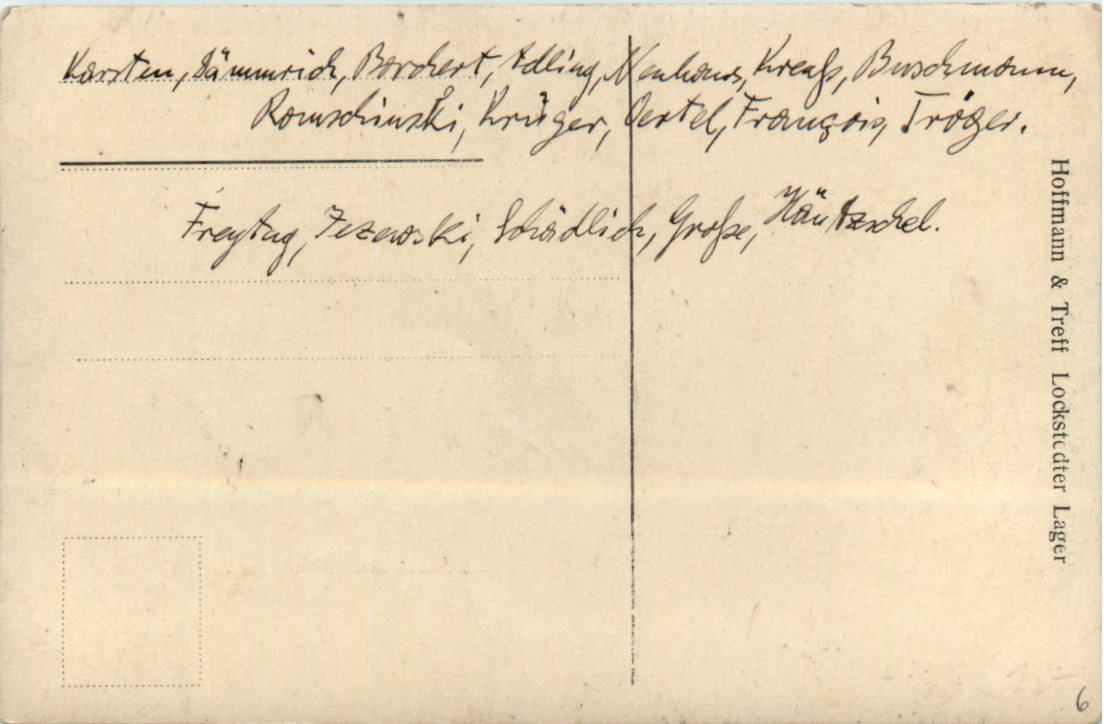 Karsten, Dämmrich, Borchert, Adling, Neuhaus, Kreuß, Buschmann,
Romschinski, Krüger, Oertel, François, Tröger.
Freytag, Jezewski, Schädlich, Große, Häntzschel.
Hoffmann & Treff Lockstedter Lager
6